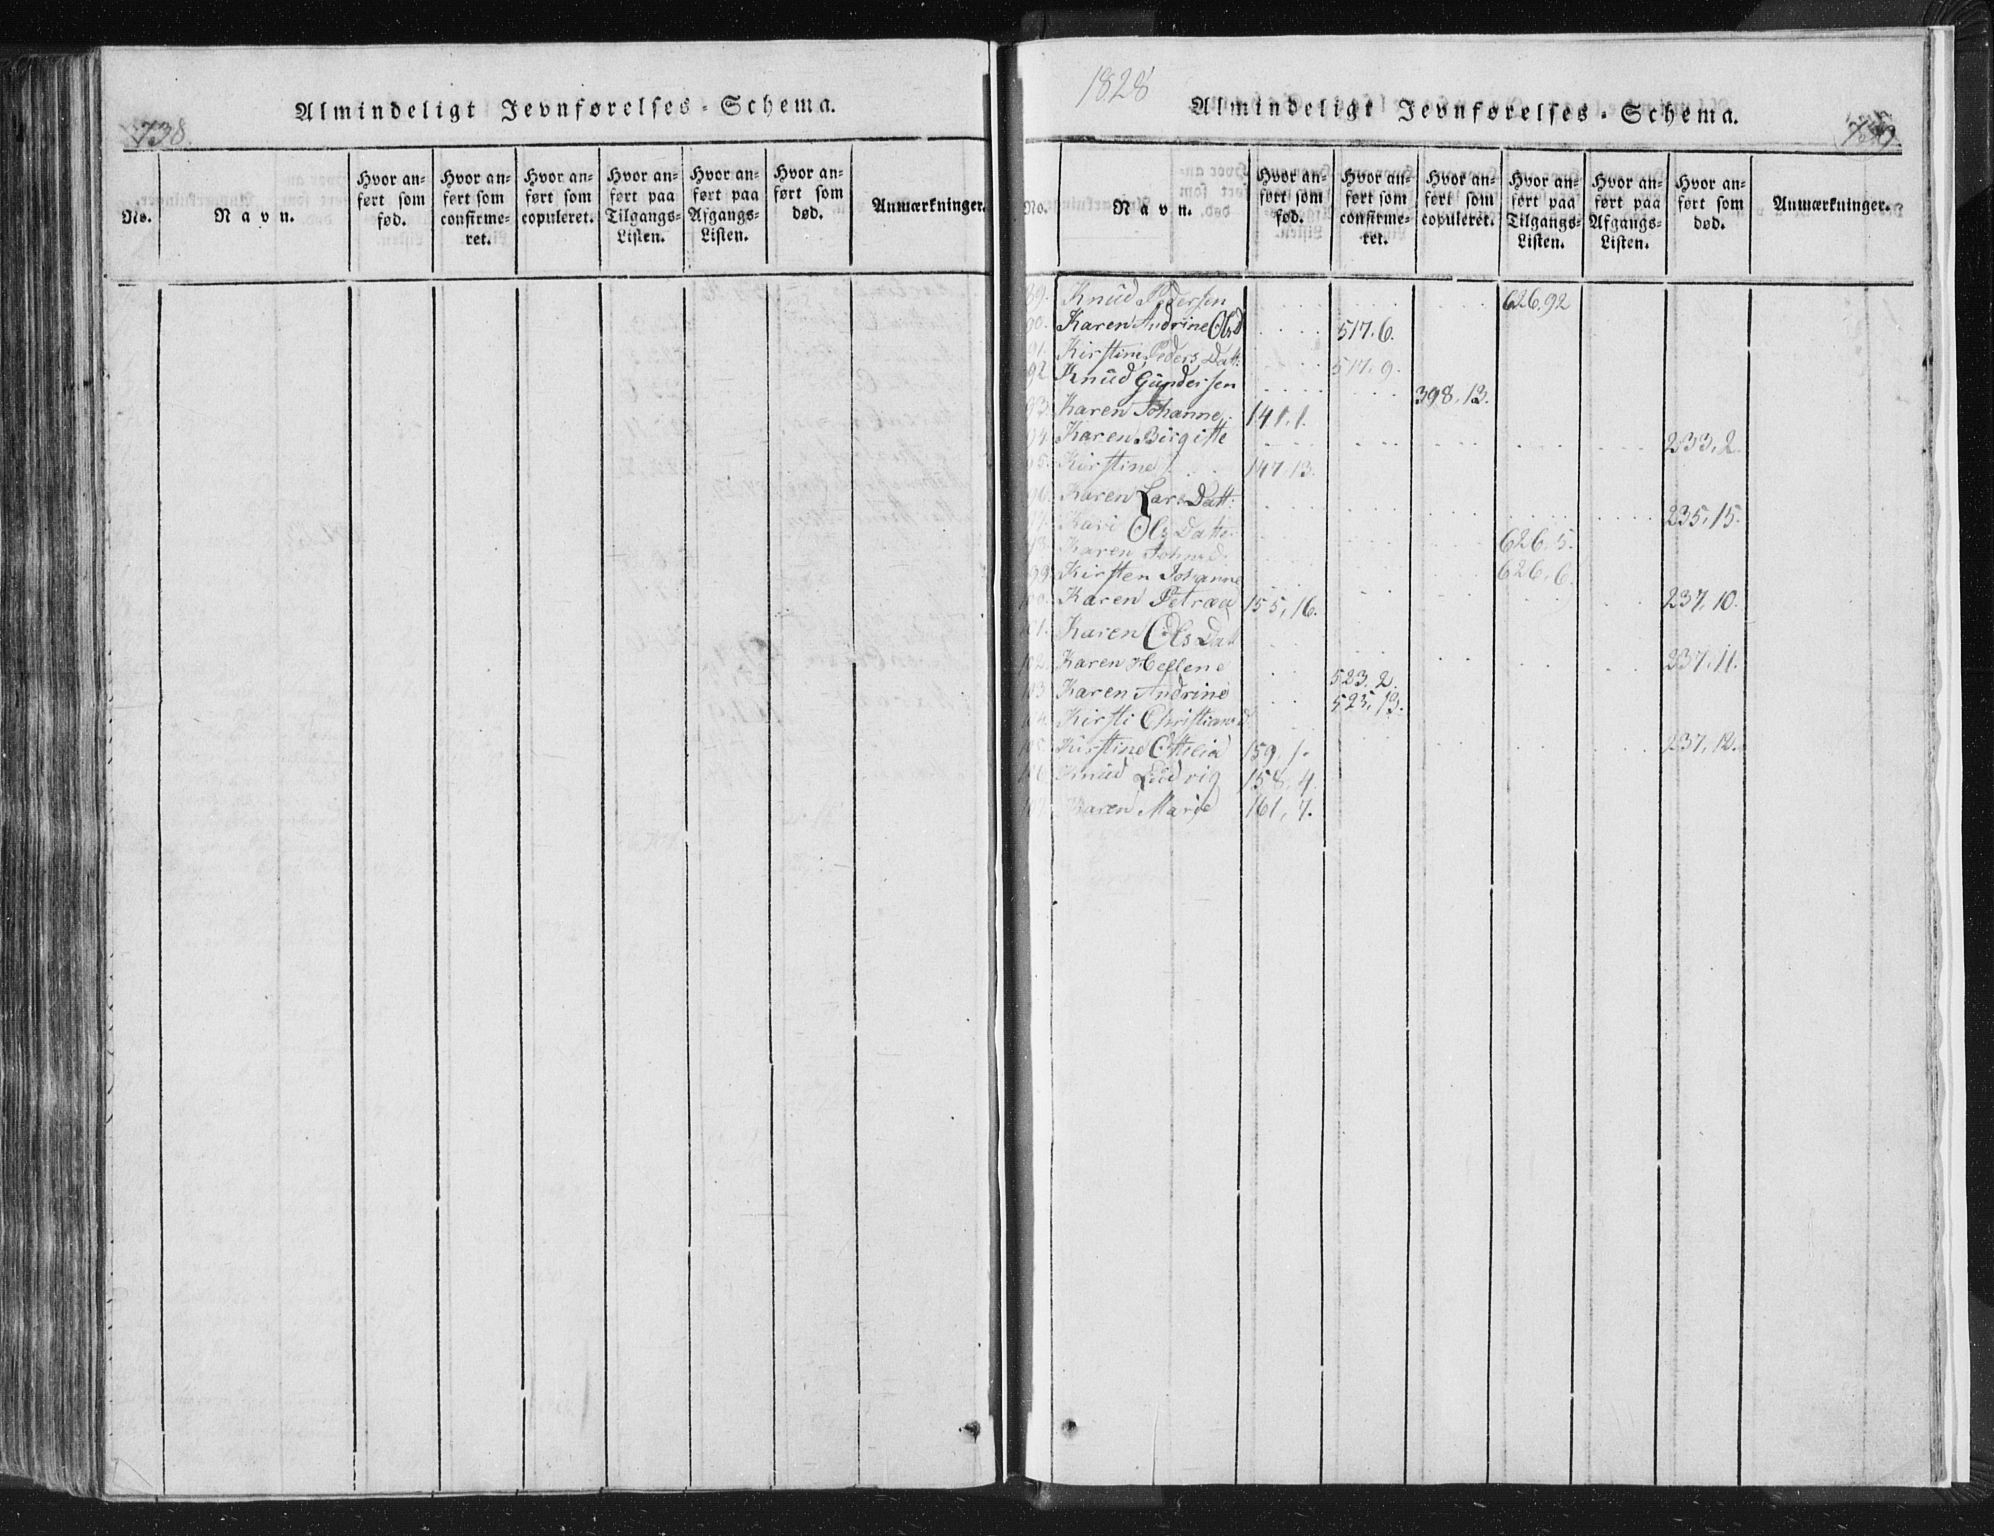 738.
Almindeligt Jevnførelses-Schema.
No. Navn. Hvor anført som fød. Hvor anført som confirmeret. Hvor anført som copuleret. Hvor anført paa Tilgangs-Listen. Hvor anført paa Afgangs-Listen. Hvor anført som død. Anmærkninger.
1828
Almindeligt Jevnførelses-Schema.
739.
No. Navn. Hvor anført som fød. Hvor anført som confirmeret. Hvor anført som copuleret. Hvor anført paa Tilgangs-Listen. Hvor anført paa Afgangs-Listen. Hvor anført som død. Anmærkninger.
89. Knud Pedersen 626,92
90. Karen Andrine Olsd 517.6.
91. Kirstine Peders Datt. 517,9.
92 Knud Gundersen 398,13.
93. Karen Johanne 141,1.
94. Karen Birgitte 233,2.
95. Kirstine 147,13.
96. Karen Lars Datt. 235,15.
97. Kari Ols Datt. 626,5.
98. Karen Johnsd. 626,6.
99 Kirsten Johanne
100. Karen Petrea 155,16. 237,10.
101. Karen Ols Datt
102. Karen Hellene 523.2. 237,11.
103 Karen Andrine 525,13.
104. Kirsti Christiansd. 237,12.
105. Kirstine Ottilia 159,1.
106 Knud Ludvig 158,4.
107 Karen Marie 161,7.